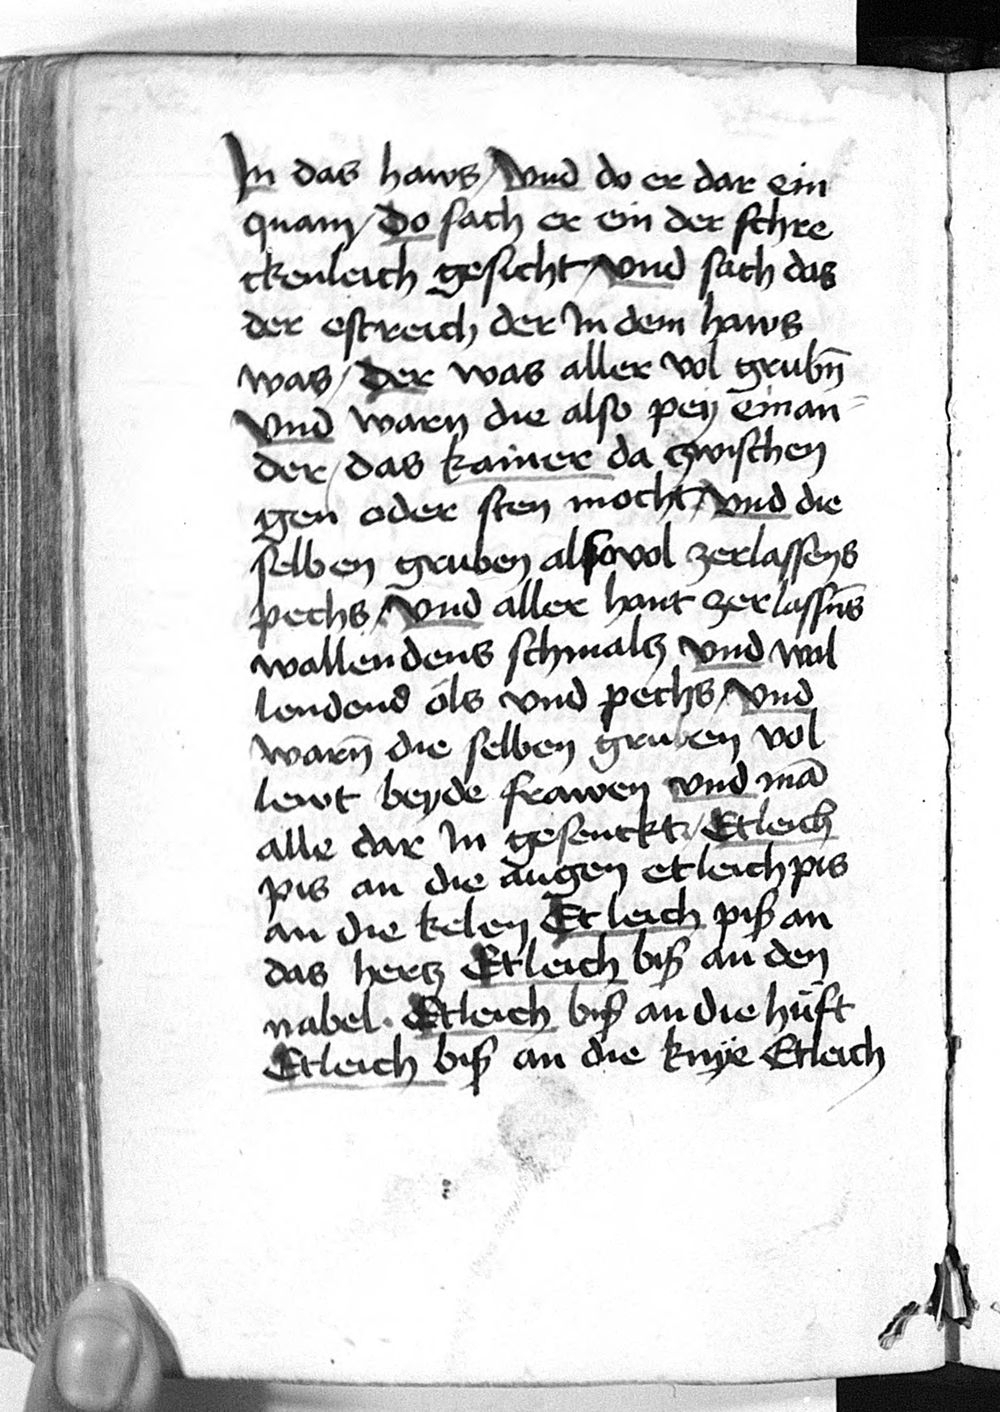 In das haws / Vnd do er dar ein
quam / Do sach er ein der schre
ckenleich gesicht / vnd sach das
der estreich der In dem haws
was / Der was aller vol grubn̄
Vnd warn die also pey einan-
der / das kainer da zwischen
gen oder sten mocht / vnd die
selben gruben also vol zerlassens
pechs / Vnd aller hant zerlassn̄s
wallendens schmaltz vnd wal
lendend öls vnd pechs / Vnd
warn̄ die selben gruben vol
lewt beyde frawen vnd mā
alle dar In gesenckt / Etleich
pis an die augen etleich pis
an die kelen Etleich piß an
das hertz Etleich biß an den
nabel. Etleich biß an die hüft
Etleich biß an die knÿe Etleich